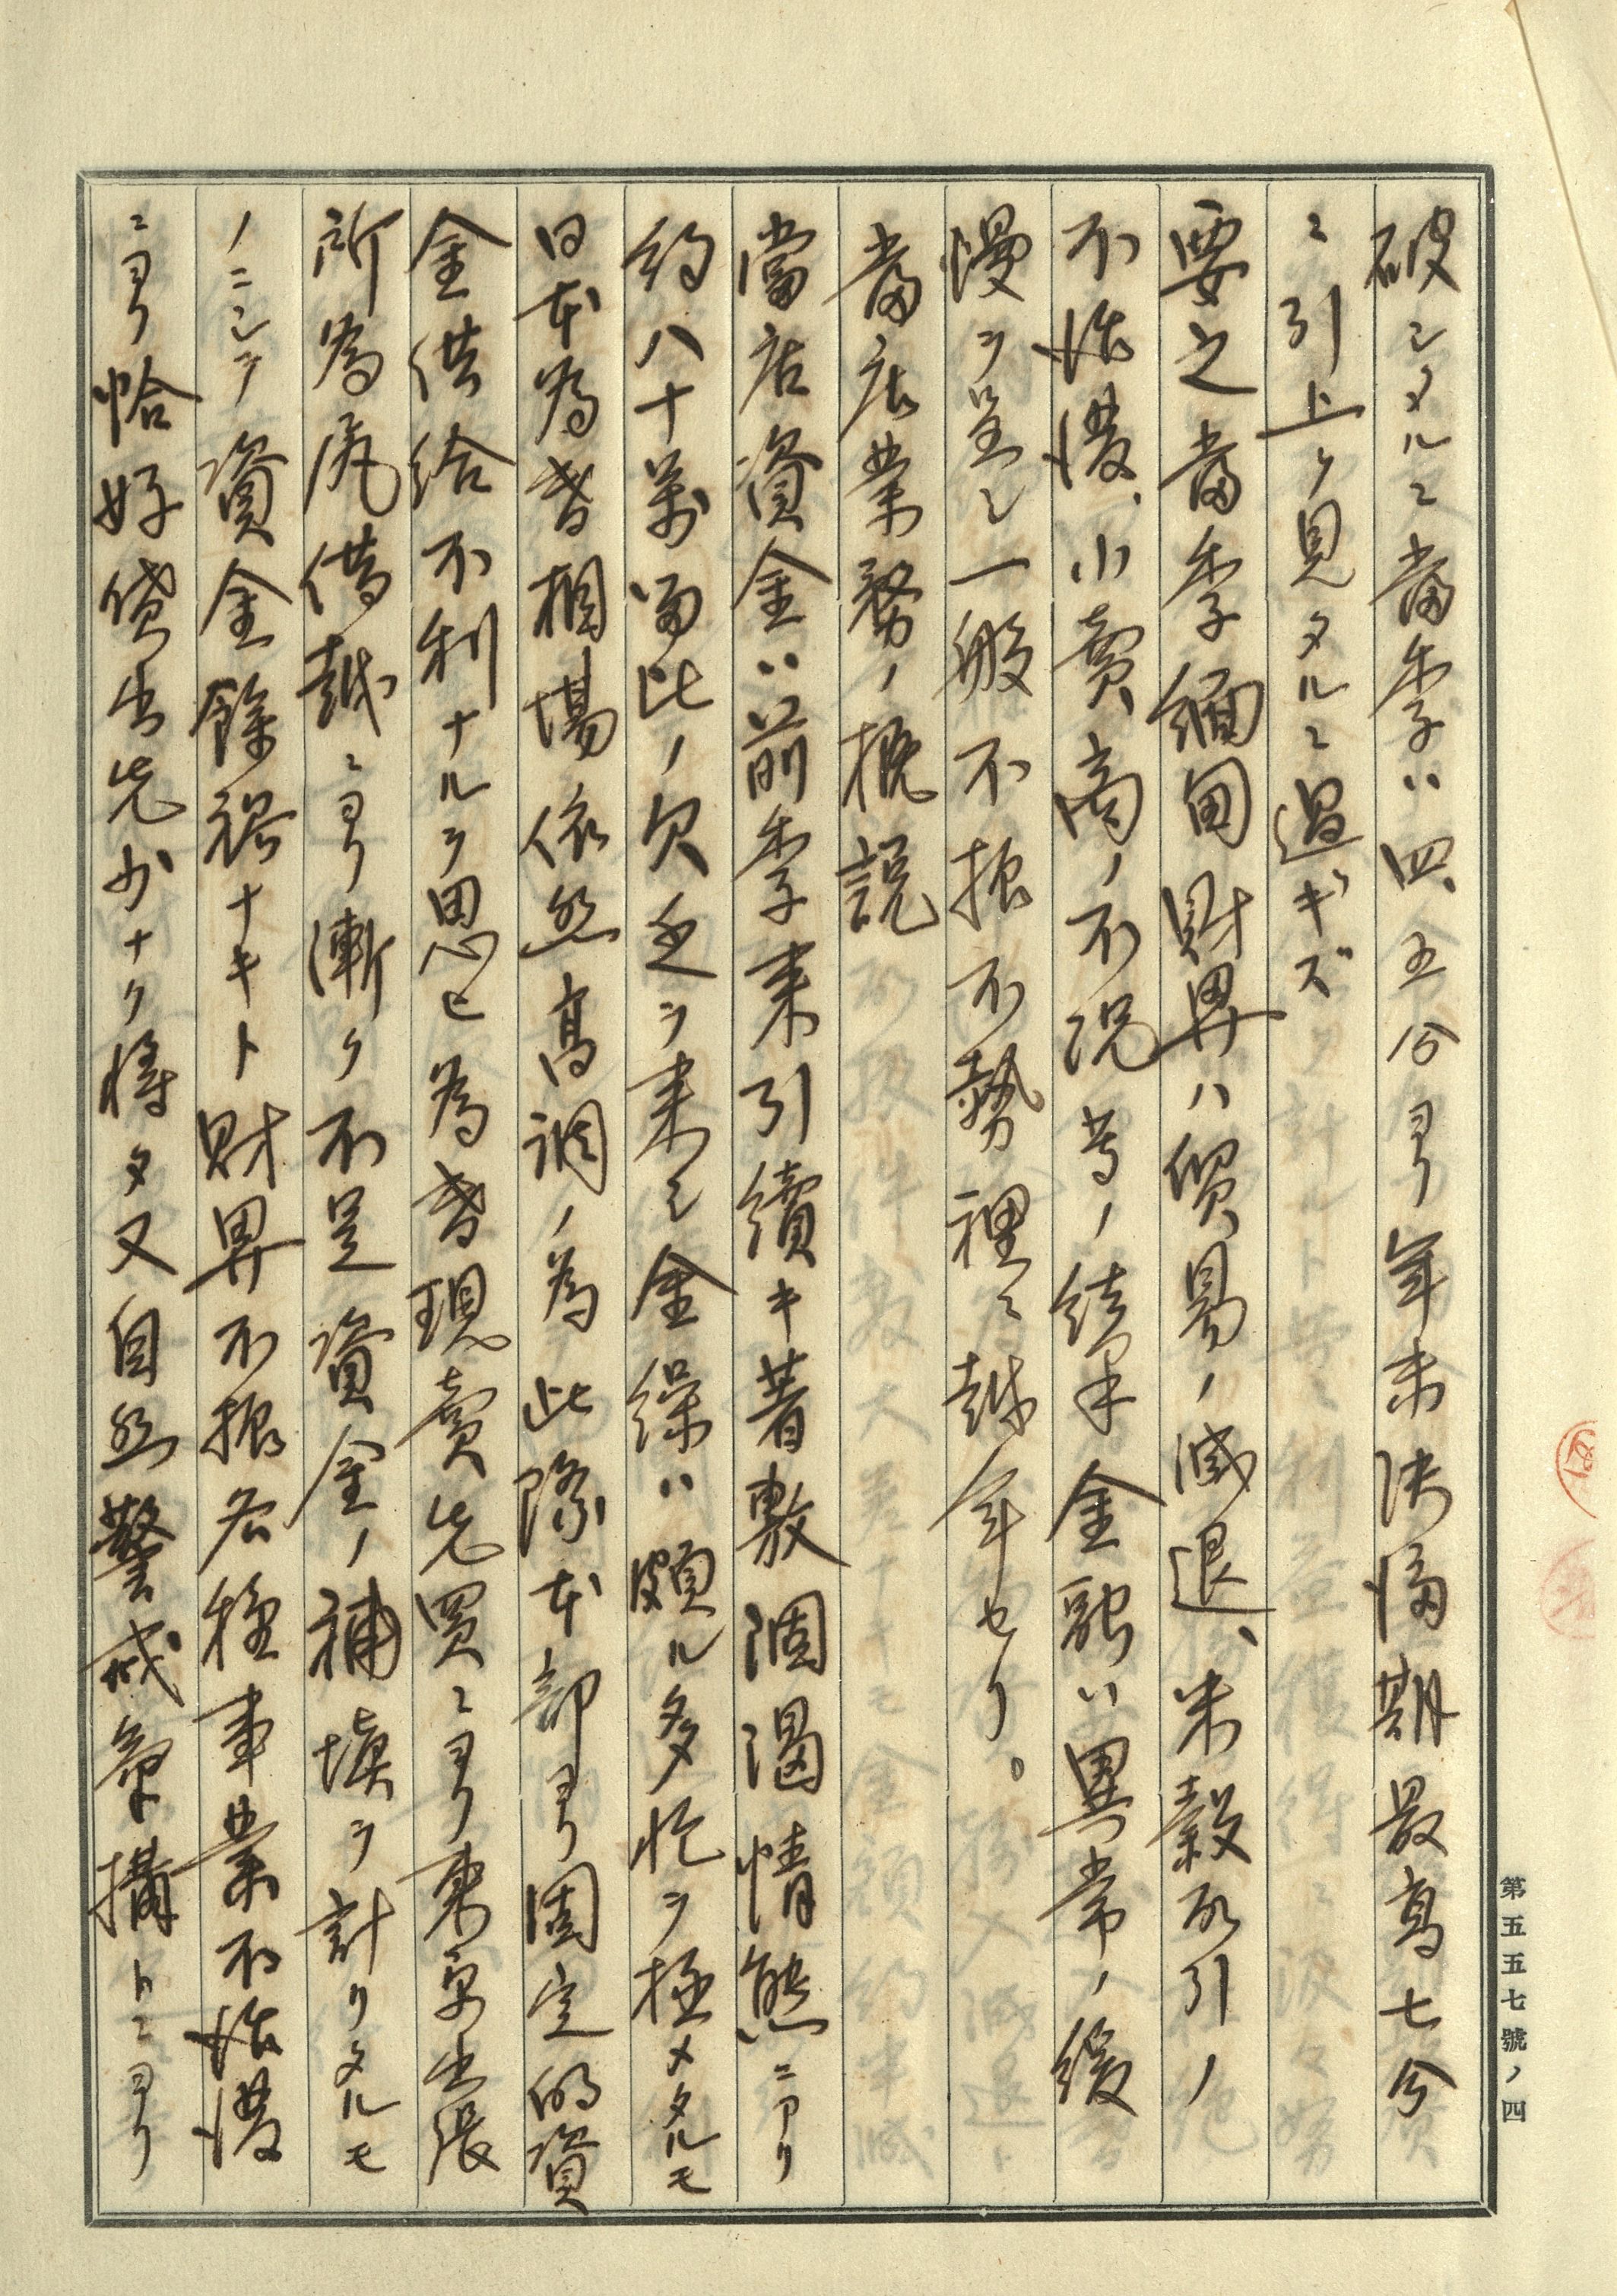 破シタルニ當季ハ四、五分ヨリ年末決済期最高七分
ニ引上ケ見タルニ過ギズ
要之當季緬甸財界ハ貿易ノ減退、米穀取引ノ
不活溌、小賣商ノ不況等ノ結果金融ハ異常ノ緩
慢ヲ呈シ一般不振不勢裡ニ越年セリ。
當店業務ノ概説
當店資金ハ前季来引續キ著敷涸渇情態ニアリ
約八十萬留比ノ欠乏ヲ来シ金繰ハ頗ル多忙ヲ極メタルモ
日本為替相場依然高調ノ為此際本部ヨリ固定的資
金供給不利ナルヲ思ヒ為替現賣先買ニヨリ東京出張
所為尻借越ニヨリ漸ク不足資金ノ補塡ヲ計リタルモ
ノニシテ資金餘裕ナキト財界不振各種事業不活溌
ニヨリ恰好貸出先少ナク将タ又自然警戒気構トニヨリ
第五五七號ノ四